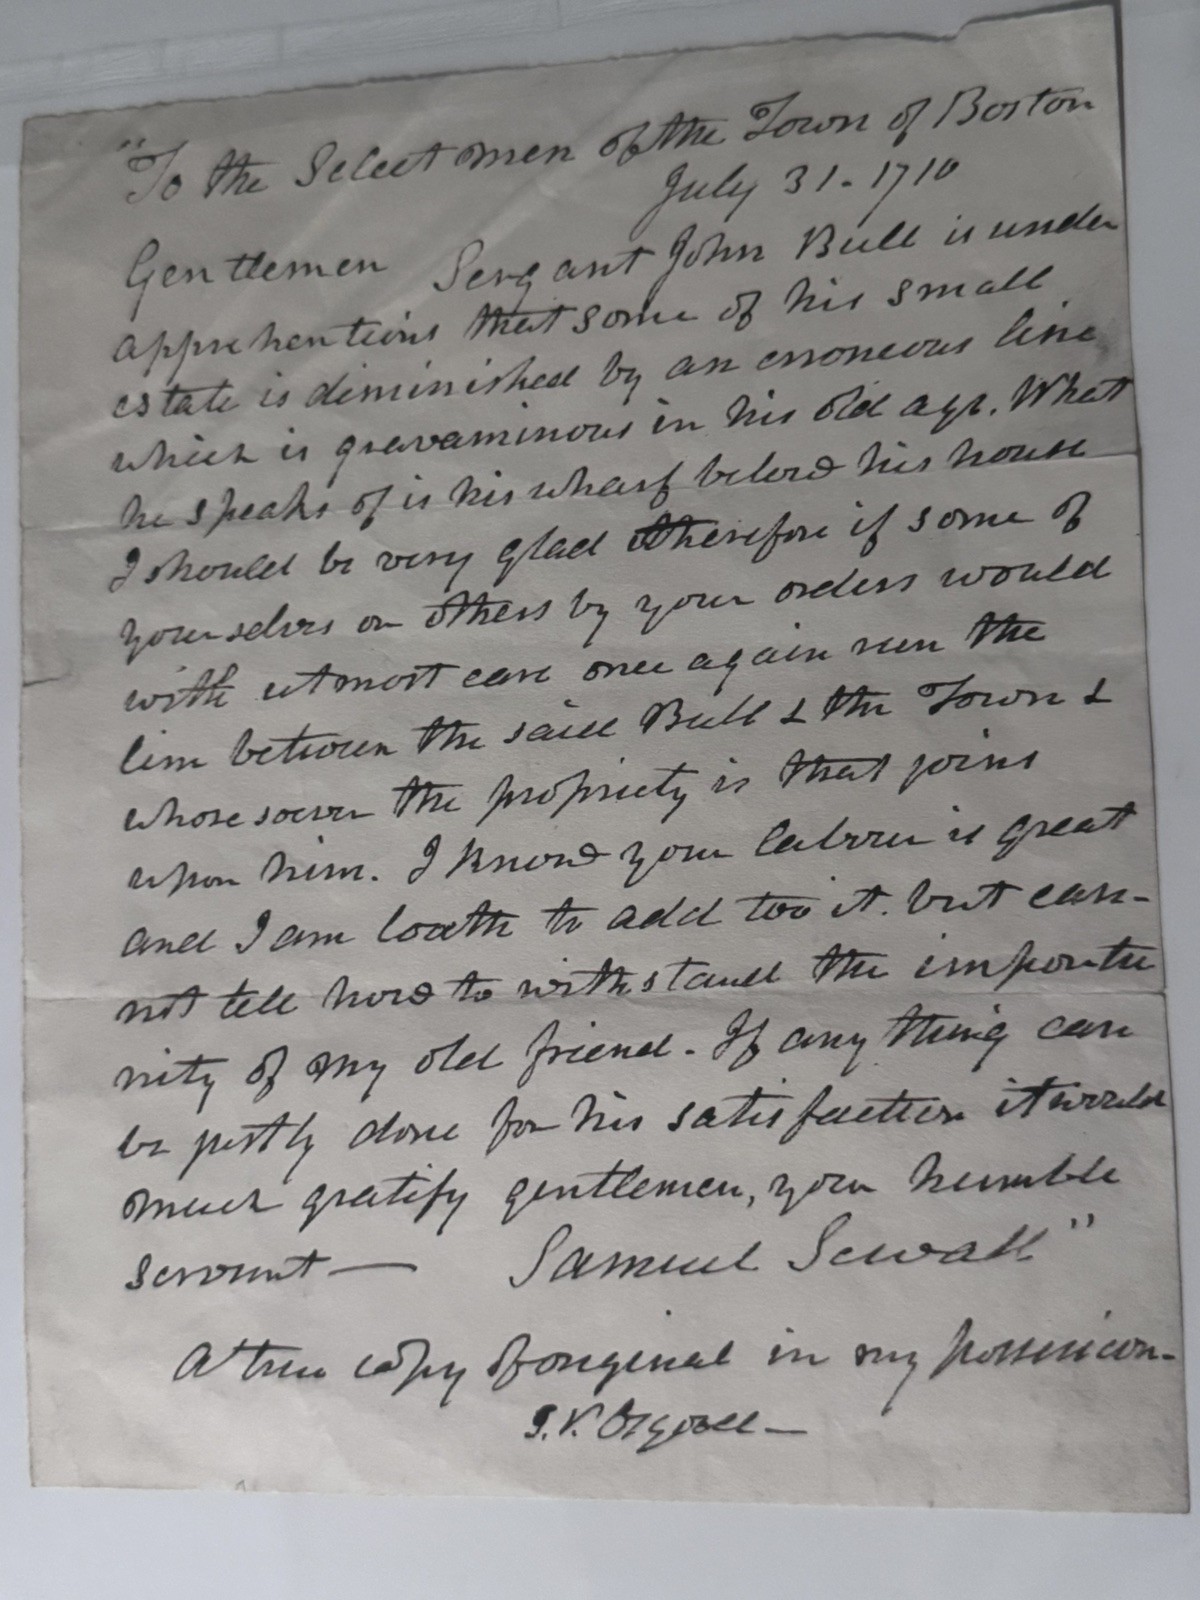 "To the Select men of the Town of Boston
July 31. 1710
Gentlemen Sergant John Bull is under
apprehentions that some of his small
estate is diminished by an erroneous line
which is gravaminous in his old age. What
he speaks of is his wharf belowe his house
I should be very glad therefore if some of
yourselves or others by your orders would
with utmost care once again run the
line between the said Bull & the Town &
whose soever the propriety is that joins
upon him. I know your labour is great
and I am loath to add too it. but can-
not tell how to withstand the importu
nity of my old friend. If any thing can
be justly done for his satisfaction it would
much gratify gentlemen, your humble
servant — Samuel Sewall"
A true copy of original in my possession.